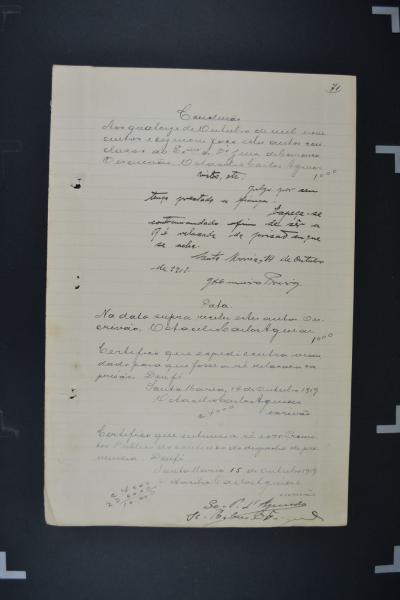 71
Conclusão
Aos quatorze de Outubro de mil nove
centos e faço estes autos con
clusos ao Ex.mo Sr. Dr. Juiz da Comarca
O escrivão, Octacilio Carlos Aguiar
1000
Vistos, etc.
Julgo por sen
tença prestada a fiança.
Expeça-se
contramandado afim de ser a
ré relaxada da prisão em que
se acha.
Santa Maria, 14 de Outubro
de 1919.
Data.
Na data supra recebi estes autos. O es
crivão, Octacilio Carlos Aguiar
1000
Certifico que expedi contra man
dado para que fosse a ré relaxada da
prisão. Dou fé
Santa Maria, 14 de Outubro 1919
Octacilio Carlos Aguiar
2000
escrivão
Certifico que intimei a ré e o Dr Promo
tor Publico do conteudo do despacho de pro
nuncia. Dou fé.
Santa Maria 15 de Outubro 1919
Octacilio Carlos Aguiar
escrivão